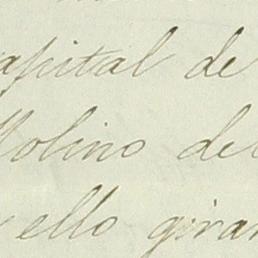 apital de
olino de
ello giran